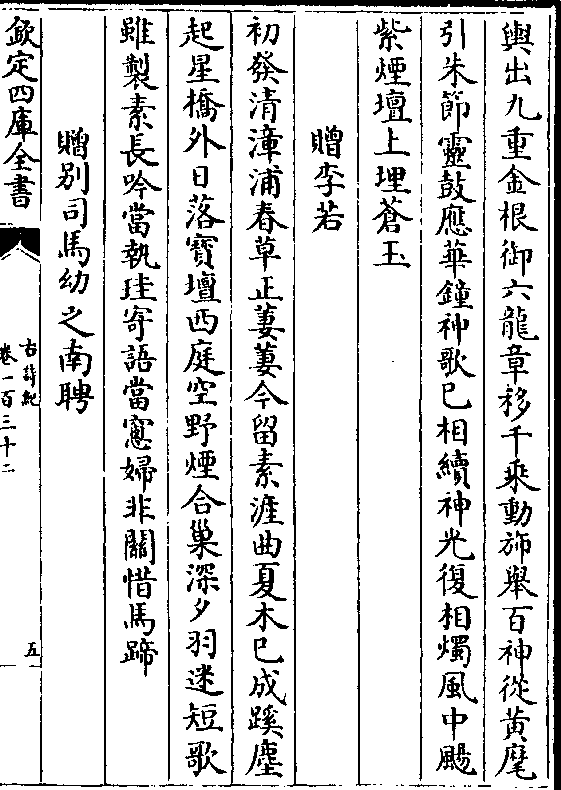 輿出九重金根御六龍章移千乘動斾舉百神從黄麾
引朱節靈鼓應華鐘神歌已相續神光復相燭風中颺
紫煙壇上埋蒼玉
贈李若
初發清漳浦春草正萋萋今留素滻曲夏木已成蹊塵
起星橋外日落寳壇西庭空野煙合巢深夕羽迷短歌
雖製素長吟當執珪寄語當窻婦非關惜馬蹄
贈别司馬幼之南聘
欽定四庫全書
古詩紀
卷一百三十二
五